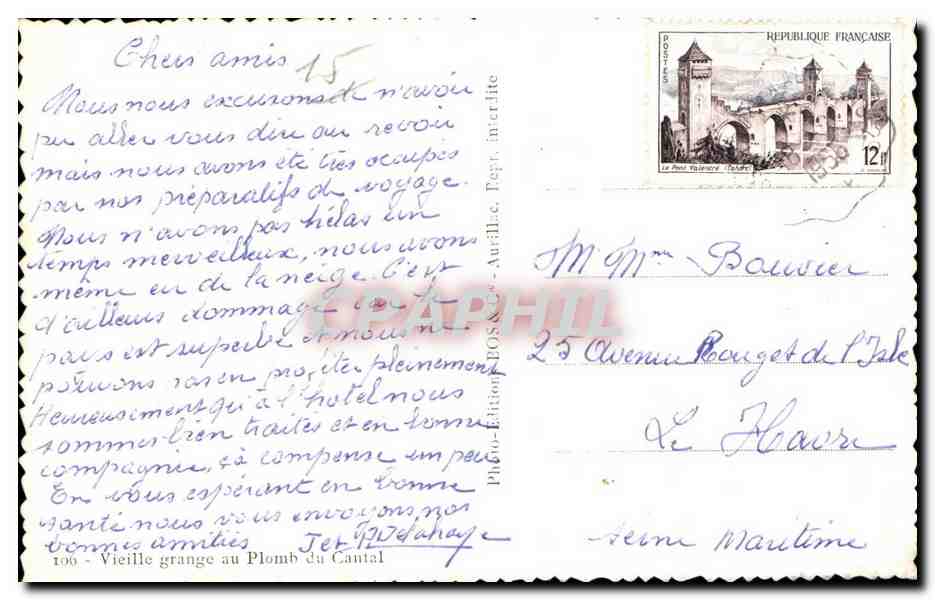 Chers amis
15
Nous nous excusons de n'avoir
pu aller vous dire au revoir
mais nous avons été très occupés
par nos préparatifs de voyage.
Nous n'avons pas hélas un
temps merveilleux, nous avons
même eu de la neige. C'est
d'ailleurs dommage car le
pays est superbe et nous ne
pouvons pas en profiter pleinement
Heureusement qu'à l'hotel nous
sommes bien traités et en bonne
compagnie, çà compense un peu
En vous espérant en bonne
santé nous vous envoyons nos
bonnes amitiés J et R Delahaye
106 - Vieille grange au Plomb du Cantal
Photo-Edition BOS & Cie - Aurillac. Repr. interdite
POSTES
REPUBLIQUE FRANÇAISE
Le Pont Valentré (Cahors)
12F
1956
M. Mme Bouvier
25 Avenue Rouget de l'Isle
Le Havre
Seine Maritime
CPAPHIL